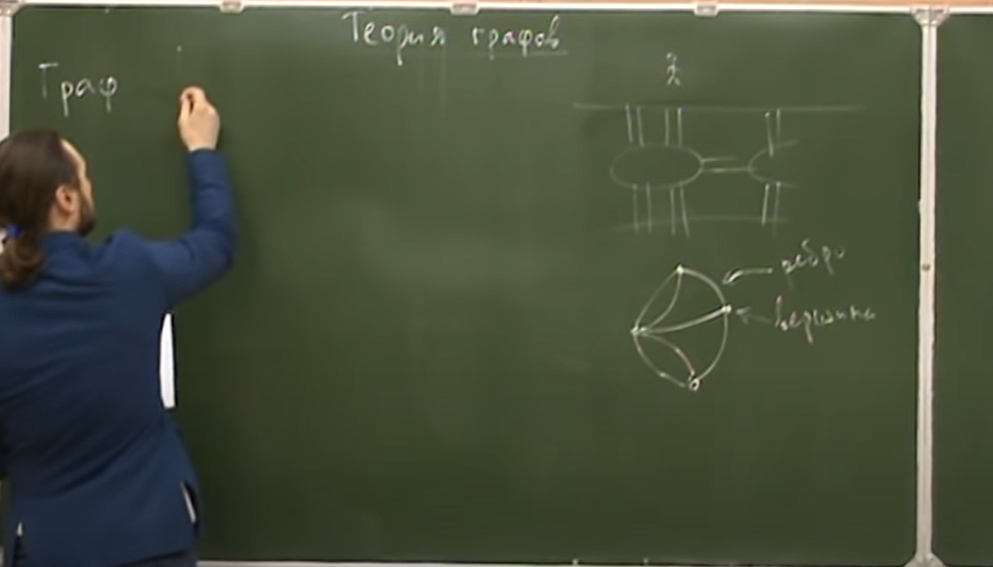 Теория графов
Граф
ребро
вершина